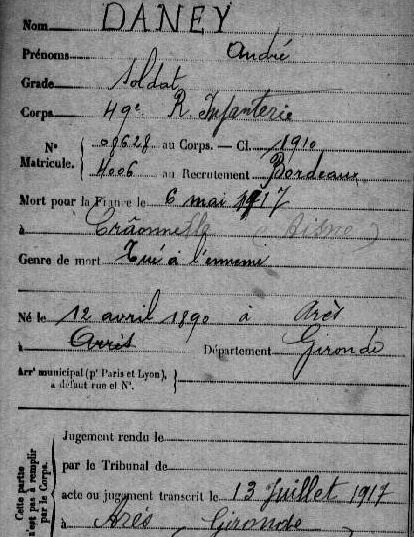 Nom DANEY
Prénoms André
Grade Soldat
Corps 49e R. Infanterie
No Matricule. 08628 au Corps. — Cl. 1910
4006 au Recrutement Bordeaux
Mort pour la France le 6 mai 1917
à Crâonnelle (Aisne)
Genre de mort Tué à l'ennemi
Né le 12 avril 1890 à Arès
à Arrès Département Gironde
Arrt municipal (pr Paris et Lyon),
à défaut rue et No.
Cette partie
n'est pas à remplir
par le Corps.
Jugement rendu le
par le Tribunal de
acte ou jugement transcrit le 13 Juillet 1917
à Arès Gironde